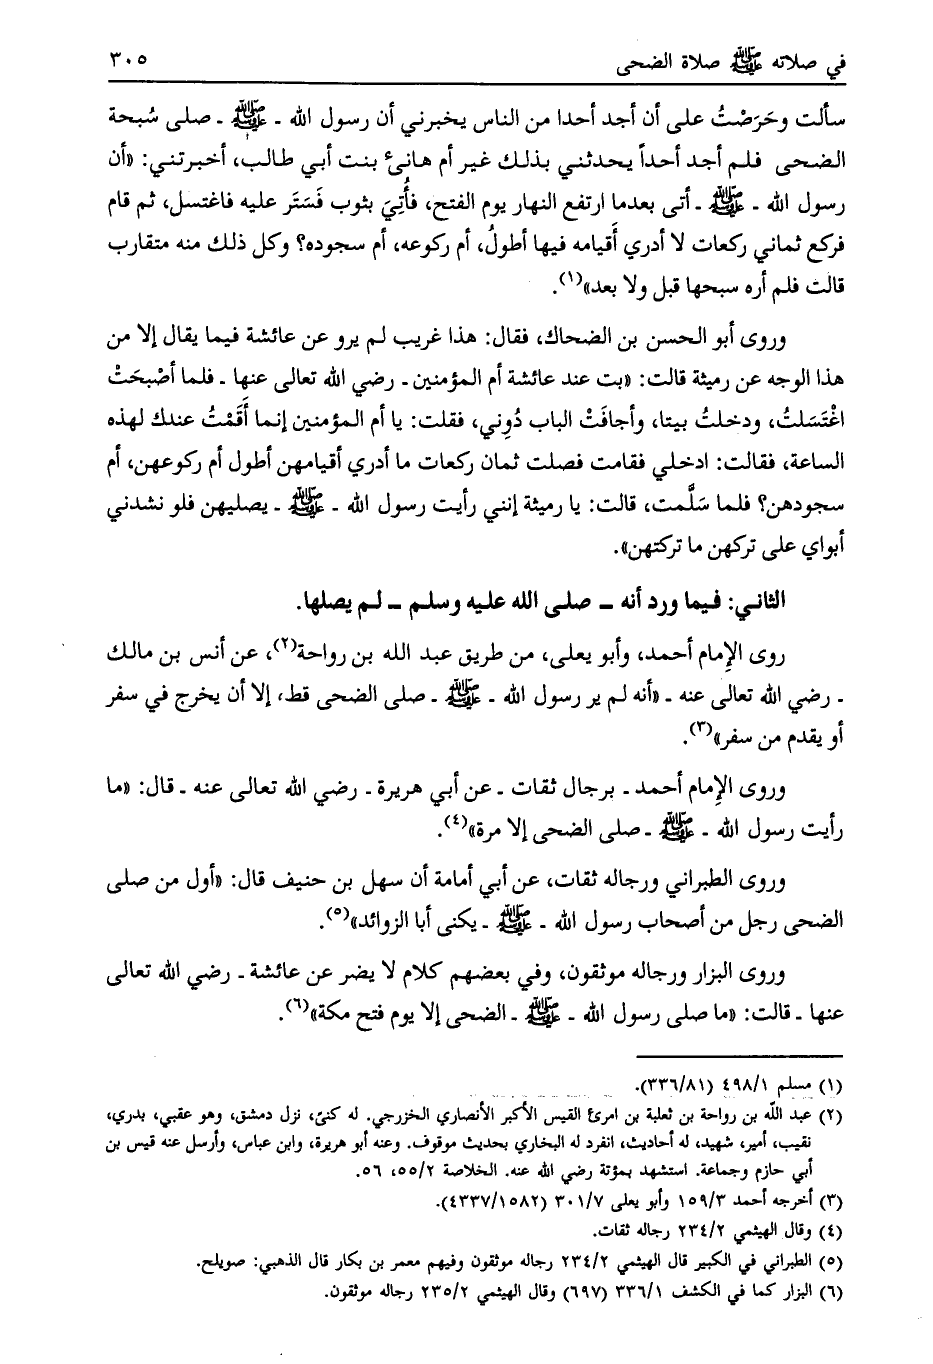 في صلاته ﷺ صلاة الضحى ٣٠٥
سألت وحَرَصْتُ على أن أجد أحدا من الناس يخبرني أن رسول الله ـ ﷺ ـ صلى سُبحة
الضحى فلم أجد أحداً يحدثني بذلك غير أم هانئ بنت أبي طالب، أخبرتني: «أن
رسول الله ـ ﷺ ـ أتى بعدما ارتفع النهار يوم الفتح، فأُتِيَ بثوب فَسَتَر عليه فاغتسل، ثم قام
فركع ثماني ركعات لا أدري أَقيامه فيها أطولُ، أم ركوعه، أم سجوده؟ وكل ذلك منه متقارب
قالت فلم أره سبحها قبل ولا بعد»(١).
وروى أبو الحسن بن الضحاك، فقال: هذا غريب لم يرو عن عائشة فيما يقال إلا من
هذا الوجه عن رميثة قالت: «بت عند عائشة أم المؤمنين ـ رضي الله تعالى عنها ـ فلما أصْبحَتْ
اغْتَسَلتُ، ودخلتُ بيتا، وأجافَتْ الباب دُوني، فقلت: يا أم المؤمنين إنما أَقَمْتُ عندك لهذه
الساعة، فقالت: ادخلي فقامت فصلت ثمان ركعات ما أدري أقيامهن أطول أم ركوعهن، أم
سجودهن؟ فلما سَلَّمت، قالت: يا رميثة إنني رأيت رسول الله ـ ﷺ ـ يصليهن فلو نشدني
أبواي على تركهن ما تركتهن».
الثاني: فيما ورد أنه ـ صلى الله عليه وسلم ـ لم يصلها.
روى الإمام أحمد، وأبو يعلى، من طريق عبد الله بن رواحة(٢)، عن أنس بن مالك
ـ رضي الله تعالى عنه ـ «أنه لم ير رسول الله ـ ﷺ ـ صلى الضحى قط، إلا أن يخرج في سفر
أو يقدم من سفر»(٣).
وروى الإمام أحمد ـ برجال ثقات ـ عن أبي هريرة ـ رضي الله تعالى عنه ـ قال: «ما
رأيت رسول الله ـ ﷺ ـ صلى الضحى إلا مرة»(٤).
وروى الطبراني ورجاله ثقات، عن أبي أمامة أن سهل بن حنيف قال: «أول من صلى
الضحى رجل من أصحاب رسول الله ـ ﷺ ـ يكنى أبا الزوائد»(٥).
وروى البزار ورجاله موثقون، وفي بعضهم كلام لا يضر عن عائشة ـ رضي الله تعالى
عنها ـ قالت: «ما صلى رسول الله ـ ﷺ ـ الضحى إلا يوم فتح مكة»(٦).
(١) مسلم ٤٩٨/١ (٣٣٦/٨١).
(٢) عبد الله بن رواحة بن ثعلبة بن امرئ القيس الأكبر الأنصاري الخزرجي. له كنى، نزل دمشق، وهو عقبي، بدري،
نقيب، أمير، شهيد، له أحاديث، انفرد له البخاري بحديث موقوف. وعنه أبو هريرة، وابن عباس، وأرسل عنه قيس بن
أبي حازم وجماعة. استشهد بمؤتة رضي الله عنه. الخلاصة ٥٥/٢، ٥٦.
(٣) أخرجه أحمد ١٥٩/٣ وأبو يعلى ٣٠١/٧ (٤٣٣٧/١٥٨٢).
(٤) وقال الهيثمي ٢٣٤/٢ رجاله ثقات.
(٥) الطبراني في الكبير قال الهيثمي ٢٣٤/٢ رجاله موثقون وفيهم معمر بن بكار قال الذهبي: صويلح.
(٦) البزار كما في الكشف ٣٣٦/١ (٦٩٧) وقال الهيثمي ٢٣٥/٢ رجاله موثقون.